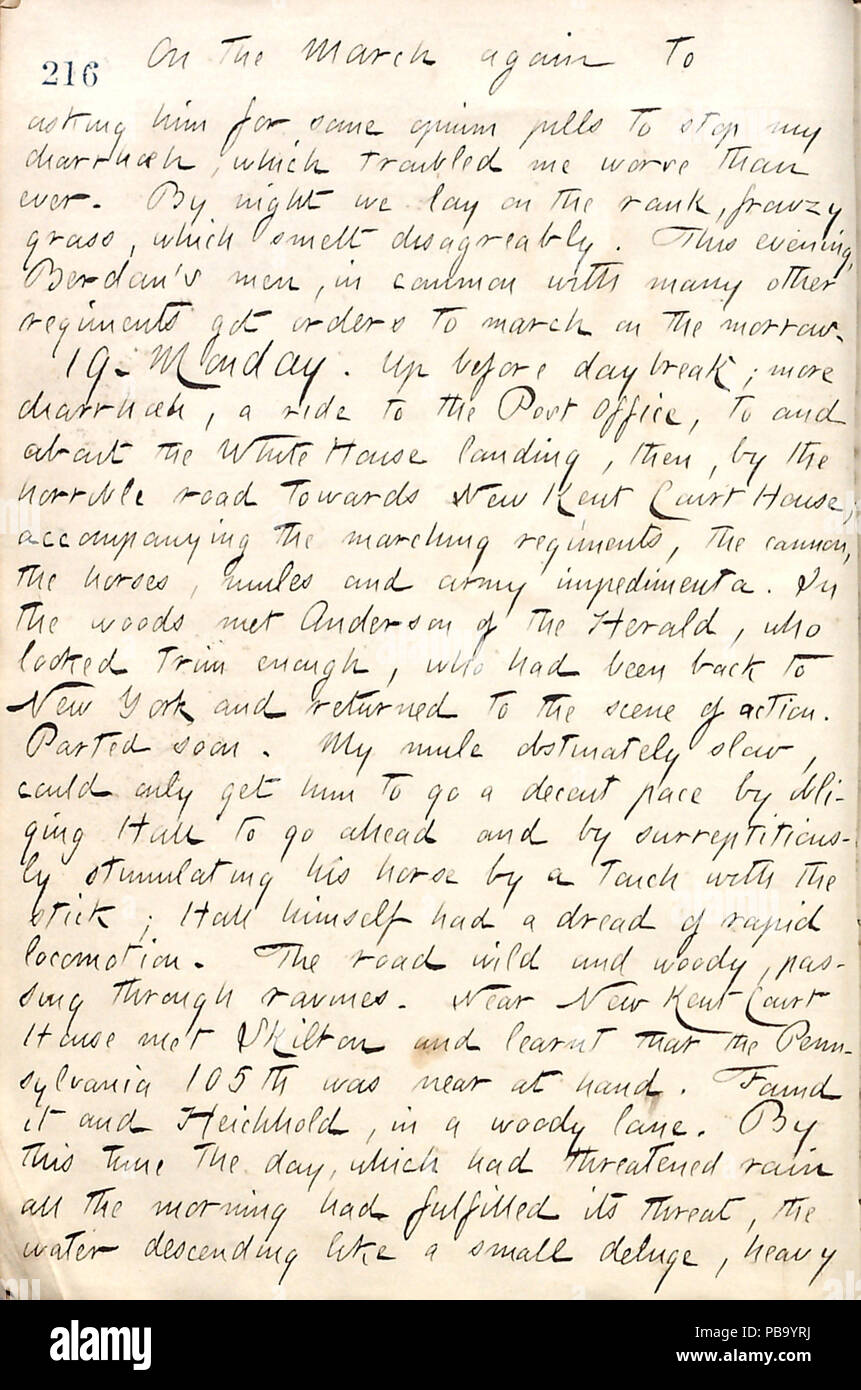 On the March again to
216
asking him for some opium pills to stop my
diarrhœh, which troubled me worse than
ever. By night we lay on the rank, frowzy
grass, which smelt disagreably. This evening,
Berdan's men, in common with many other
regiments got orders to march on the morrow.
19. Monday. Up before daybreak; more
diarrhœh, a ride to the Post Office, to and
about the White House landing, then, by the
horrible road towards New Kent Court House,
accompanying the marching regiments, the cannon,
the horses, mules and army impedimenta. In
the woods met Anderson of the Herald, who
looked trim enough, who had been back to
New York and returned to the scene of action.
Parted soon. My mule obstinately slow,
could only get him to go a decent pace by obli-
ging Hall to go ahead and by surreptitious-
ly stimulating his horse by a touch with the
stick; Hall himself had a dread of rapid
locomotion. The road wild and woody, pas-
sing through ravines. Near New Kent Court
House met Skilton and learnt that the Penn-
sylvania 105th was near at hand. Found
it and Heichhold, in a woody lane. By
this time the day, which had threatened rain
all the morning had fulfilled its threat, the
water descending like a small deluge, heavy
alamy
Image ID: PB9YRJ
www.alamy.com